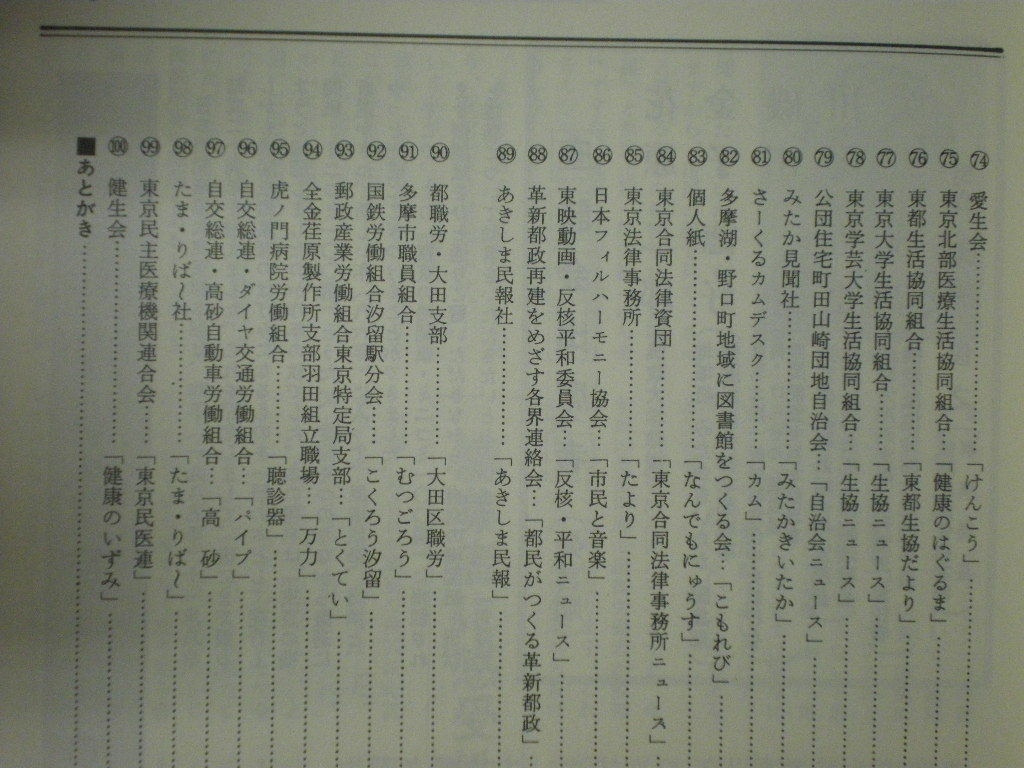 ㊆④愛生会…………「けんこう」…………
㊆⑤東京北部医療生活協同組合…「健康のはぐるま」…………
㊆⑥東都生活協同組合…………「東都生協だより」…………
㊆⑦東京大学生活協同組合………「生協ニュース」…………
㊆⑧東京学芸大学生活協同組合…「生協ニュース」…………
㊆⑨公団住宅町田山崎団地自治会…「自治会ニュース」…………
㊇⓪みたか見聞社…………「みたかきいたか」…………
㊇①さーくるカムデスク…………「カム」…………
㊇②多摩湖・野口町地域に図書館をつくる会…「こもれび」…………
㊇③個人紙…………「なんでもにゅうす」…………
㊇④東京合同法律資団…………「東京合同法律事務所ニュース」
㊇⑤東京法律事務所…………「たより」…………
㊇⑥日本フィルハーモニー協会…「市民と音楽」…………
㊇⑦東映動画・反核平和委員会…「反核・平和ニュース」…………
㊇⑧革新都政再建をめざす各界連絡会…「都民がつくる革新都政」…
㊇⑨あきしま民報社…………「あきしま民報」…………
㊈⓪都職労・大田支部…………「大田区職労」…………
㊈①多摩市職員組合…………「むつごろう」…………
㊈②国鉄労働組合汐留駅分会……「こくろう汐留」…………
㊈③郵政産業労働組合東京特定局支部…「とくてい」…………
㊈④全金荏原製作所支部羽田組立職場…「万力」…………
㊈⑤虎ノ門病院労働組合………「聴診器」…………
㊈⑥自交総連・ダイヤ交通労働組合…「パイプ」…………
㊈⑦自交総連・高砂自動車労働組合…「高　砂」…………
㊈⑧たま・りば〜社…………「たま・りば〜」…………
㊈⑨東京民主医療機関連合会……「東京民医連」…………
⑩⓪健生会…………「健康のいずみ」…………
■あとがき…………